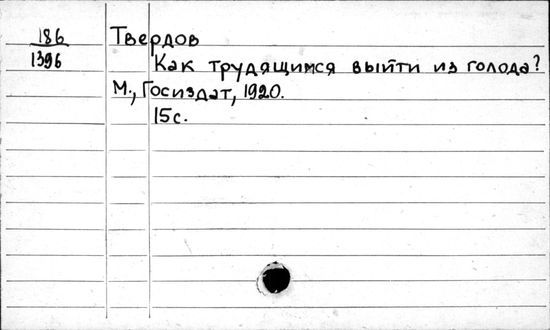 186
1396
Твердов
Как трудящимся выйти из голода?
М., Госиздат, 1920.
15с.